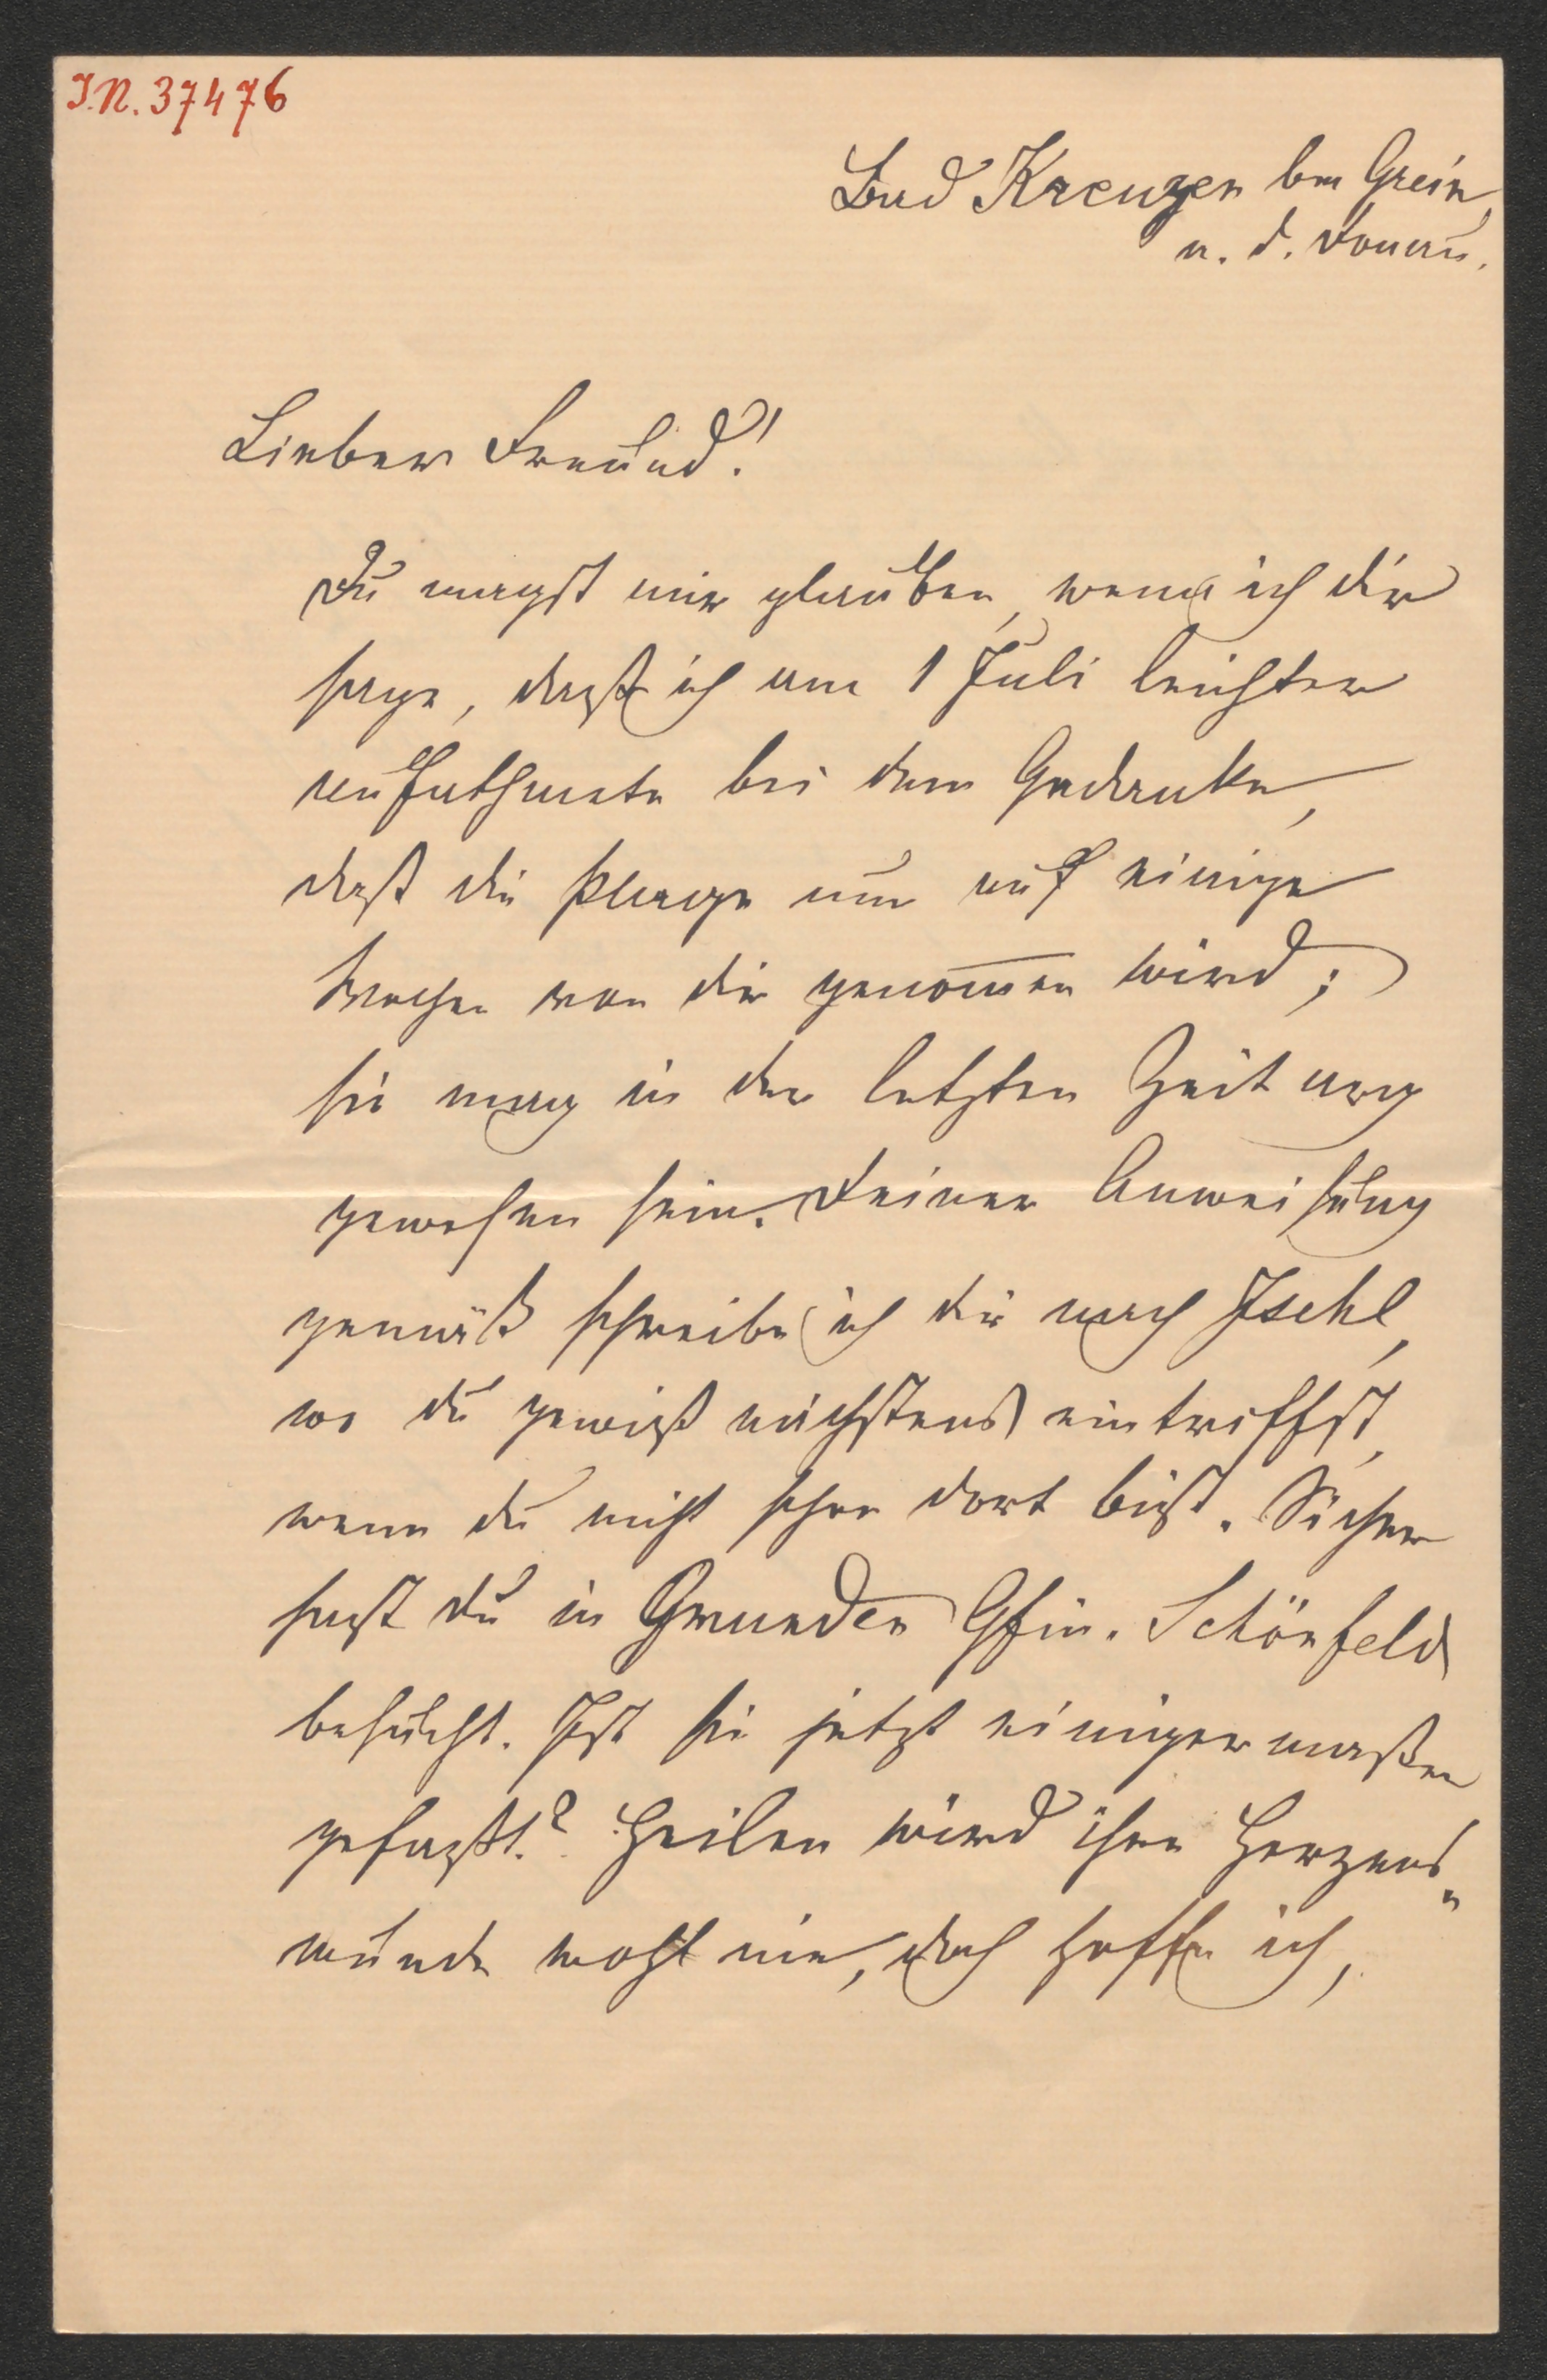 I.N. 37476
Bad Kreuzen bei Grein
a. d. Donau.
Lieber Freund!
Du magst mir glauben, wenn ich dir
sage, daß ich am 1 Juli leichter
aufathmete bei dem Gedanken,
daß die Plage nun auf einige
Wochen von dir genom̅en wird;
sie mag in der letzten Zeit arg
gewesen sein. Deiner Anweisung
gemäß schreibe ich dir nach Ischl,
wo du gewiß nächstens eintriffst,
wenn du nicht schon dort bist. Sicher
hast du in Gmunden Gfin. Schönfeld
besucht. Ist sie jetzt einigermaßen
gefaßt? Heilen wird ihre Herzens„
wunde wohl nie, doch hoffe ich,